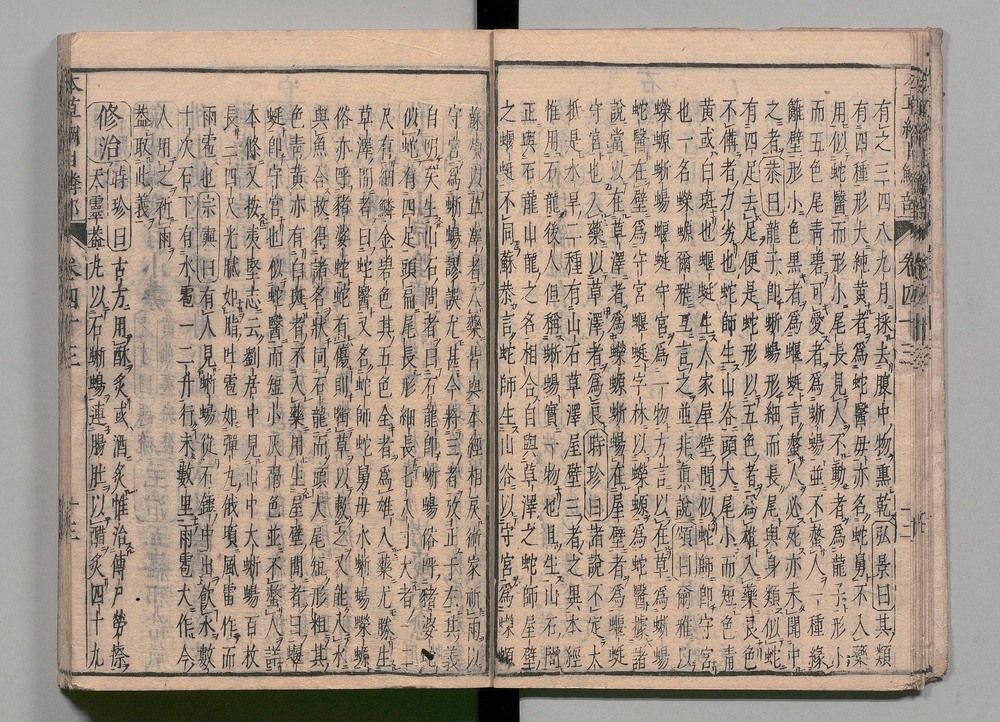 有之三四八九月採去腹中物熏乾弘景曰其類
有四種形大純黃者爲蛇醫母亦名蛇舅不入藥
用似蛇醫形小尾長見人不動者爲龍子形小
而五色尾青碧可愛者爲蜥蜴並不螫人一種緣
籬壁形小色黑者爲蝘蜓言螫人必死亦未聞中
之者恭曰龍子即蜥蜴形細而長尾與身類似蛇
有四足去足便是蛇形以五色者爲雄入藥良色
不備者力劣也蛇師生山谷頭大尾小而短色青
黃或白斑也蝘蜓生人家屋壁間似蛇師即守宮
也一名蠑螈爾雅互言之並非真說頌曰爾雅以
蠑螈蜥蜴蝘蜓守宮爲一物方言以在草爲蜥蜴
蛇醫在壁爲守宮蝘蜓字林以蠑螈爲蛇醫據諸
說當以在草澤者爲蠑螈蜥蜴在屋壁者爲蝘蜓
守宮也入藥以草澤者爲良時珍曰諸說不定大
抵是水旱二種有山石草澤屋壁三者之異本經
惟用石龍後人但稱蜥蜴實一物也且生山石間
正與石龍山龍之名相合自與草澤之蛇師屋壁
之蝘蜓不同蘇恭言蛇師生山谷以守宮爲蠑螈
蘇頌以草澤者入藥皆與本經相戾術家祈雨以
守宮爲蜥蜴謬誤尤甚今將三者攷正于左其義
自明矣生山石間者曰石龍即蜥蜴俗呼豬婆蛇
似蛇有四足頭扁尾長形細長七八寸大者一二
尺有細鱗金碧色其五色全者爲雄入藥尤勝生
草澤間者曰蛇醫又名蛇師蛇舅母水蜥蜴蠑螈
俗亦呼豬婆蛇蛇有傷則銜草以敷之又能入水
與魚合故得諸名狀同石龍而頭大尾短形粗其
色青黃亦有白斑者不入藥用生屋壁間者曰蝘
蜓即守宮也似蛇醫而短小灰褐色並不螫人詳
本條又按夷堅志云劉居中見山中大蜥蜴百枚
長三四尺光膩如脂吐雹如彈丸俄頃風雷作而
雨雹也宗奭曰有人見蜥蜴從石罅中出飲水數
十次石下有冰雹一二升行未數里雨雹大作今
人用之祈雨
蓋取此義
修治時珍曰古方用酥炙或酒炙惟治傳尸勞瘵
天靈蓋丸以石蜥蜴連腸肚以醋炙四十九